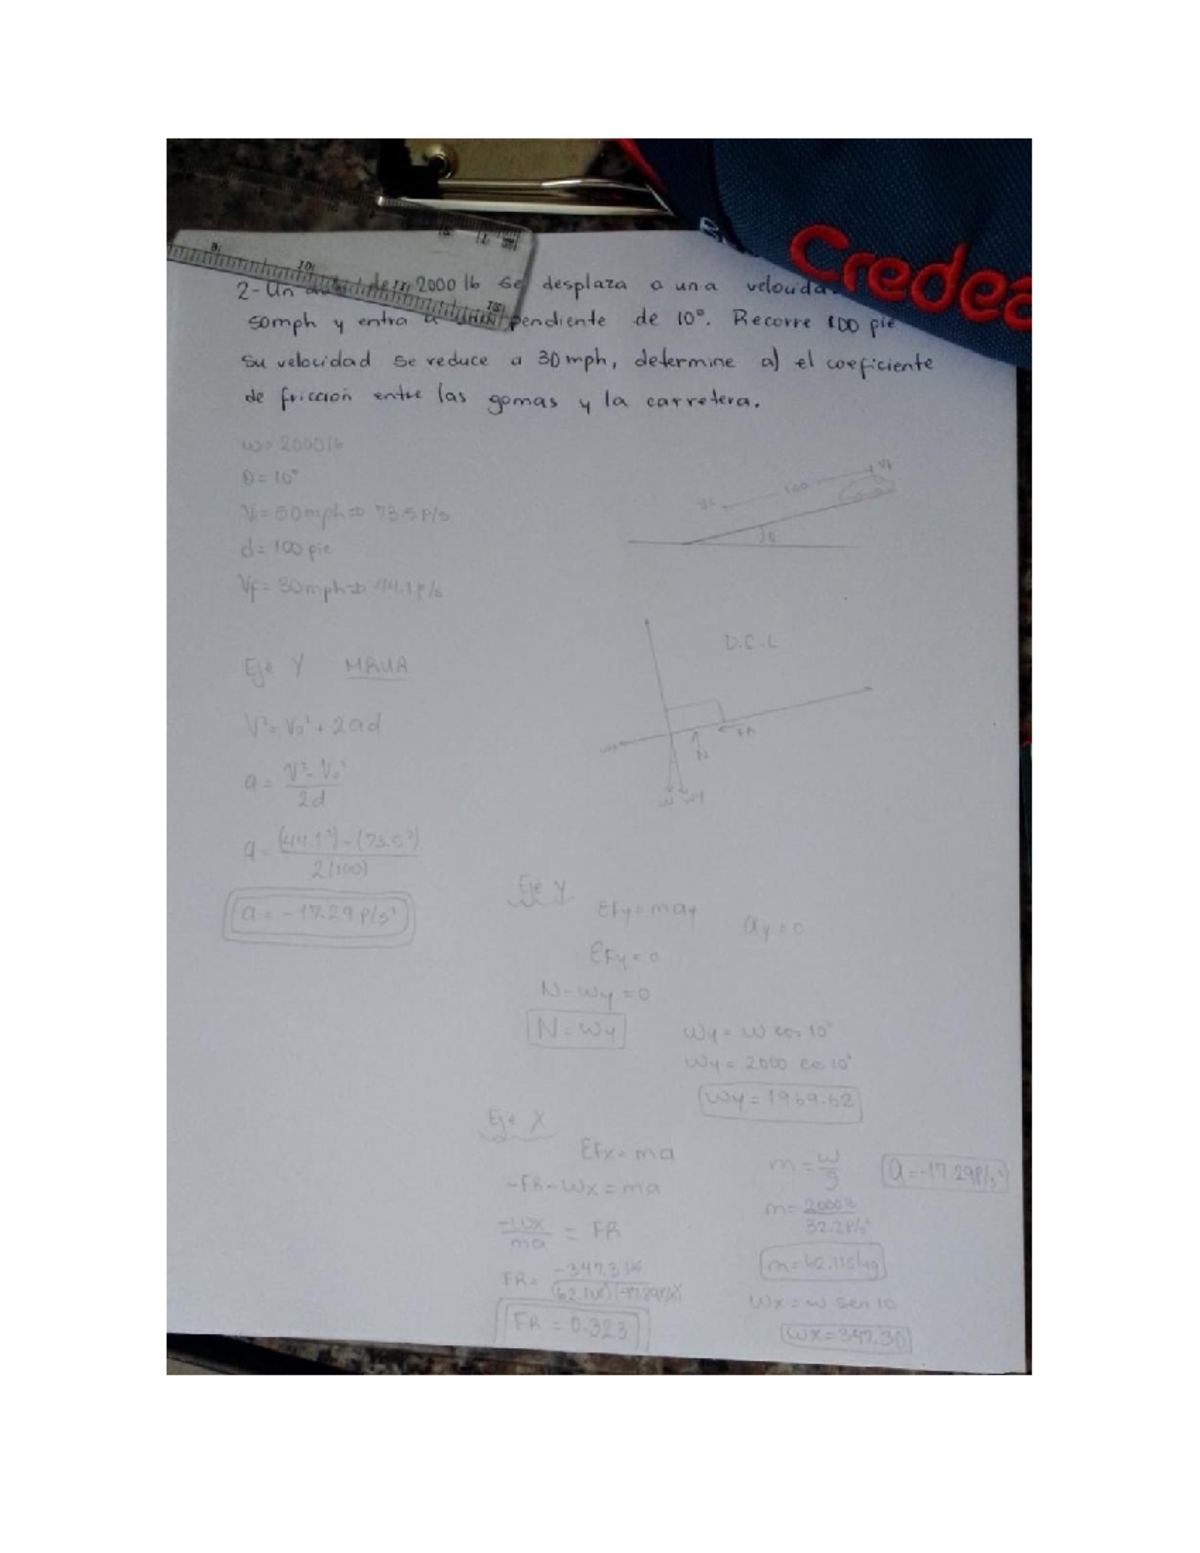 Credea
2-Un de 2000 lb se desplaza a una
50mph y entra a una pendiente de 10°. Recorre 100 pie
su velocidad se reduce a 30mph, determine a) el coeficiente
de fricción entre las gomas y la carretera.
w= 2000lb
θ= 10°
Vi= 50mph⇒ 73.5 P/s
d= 100 pie
Vf= 30mph⇒ 44.1 P/s
100
Vf
D.C.L
FR
N
W WY
Eje Y MRUA
V²= Vo²+ 2ad
a= V²- Vo²
2d
a= (44.1²)-(73.5²)
2(100)
a= -17.29 P/s²
Eje Y
ΣFy= may
ay=0
ΣFy=0
N-Wy=0
N=Wy
Wy= W cos 10°
Wy= 2000 cos 10°
Wy= 1969.62
Eje X
ΣFx= ma
-FR-Wx=ma
-Wx
ma
= FR
FR= -347.3 lb
FR = 0.323
m= W
g
a=-17.29P/s²
m= 2000lb
32.2P/s²
Wx= W sen 10
Wx=347.30